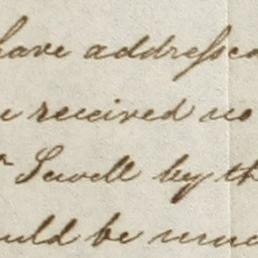 have addressed
received no
Sewell by th
ould be muc